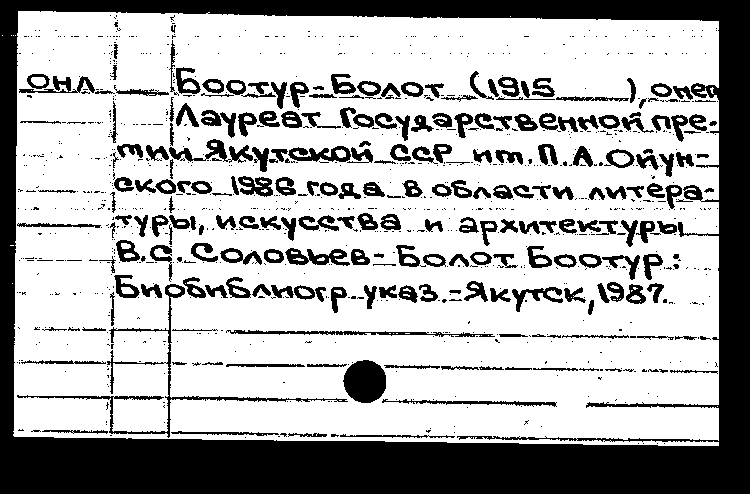 онл Боотур-Болот (1915 ), онем
Лауреат Государственной пре-
мии Якутской ССР им. П.А.Ойун-
ского 1986 года в области литера-
туры, искусства и архитектуры
В.С. Соловьев-Болот Боотур:
Биобиблиогр. указ.-Якутск, 1987.